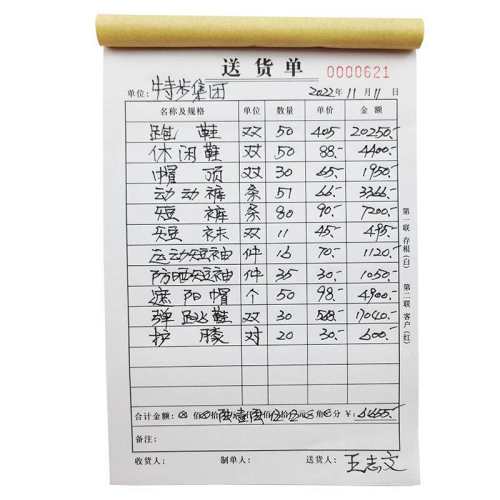 送货单 0000621
单位：特步集团 2022年11月11日
名称及规格 单位 数量 单价 金额
跑鞋 双 50 405 20250.-
休闲鞋 双 50 88.- 4400.-
帽顶 双 30 65.- 1950.-
动动裤 条 51 66.- 3366.-
短裤 条 80 90.- 7200.-
短袜 双 11 45.- 495.-
运动短袖 件 16 70.- 1120.-
防晒短袖 件 35 30.- 1050.-
遮阳帽 个 50 98.- 4900.-
弹跳鞋 双 30 568.- 17040.-
护膝 对 20 30.- 600.-
合计金额： 佰 拾 万 仟 佰 拾 元 角 分 ¥：
备注：
收货人： 制单人： 送货人：王志文
第一联 存根（白） 第二联 客户（红）